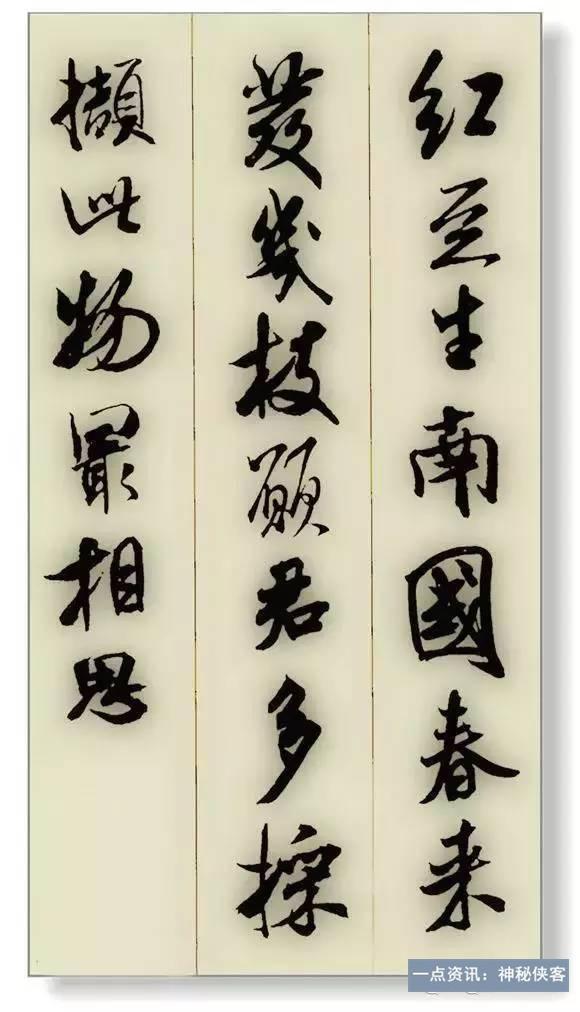 红豆生南國春来
發幾枝願君多採
擷此物最相思
一点资讯：神秘侠客